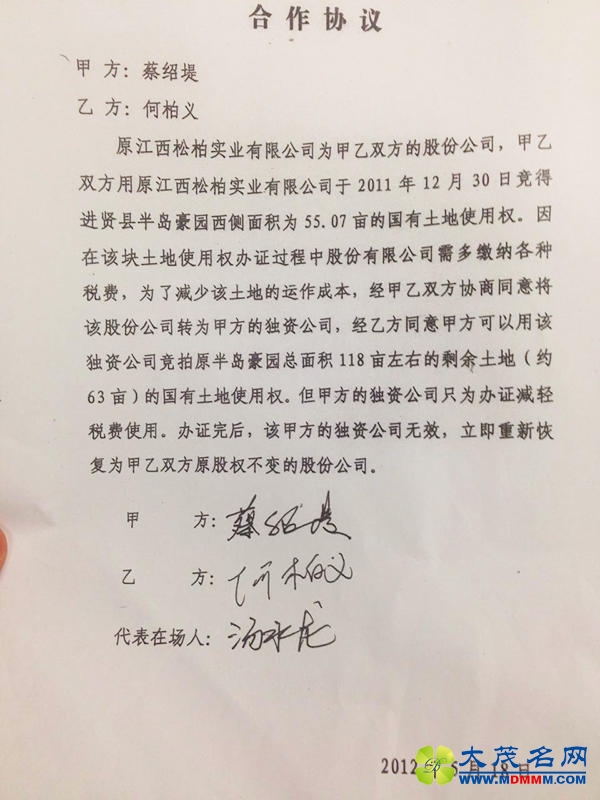 合作协议
甲 方：蔡绍堤
乙 方：何柏义
原江西松柏实业有限公司为甲乙双方的股份公司，甲乙
双方用原江西松柏实业有限公司于 2011 年 12 月 30 日竞得
进贤县半岛豪园西侧面积为 55.07 亩的国有土地使用权。因
在该块土地使用权办证过程中股份有限公司需多缴纳各种
税费，为了减少该土地的运作成本，经甲乙双方协商同意将
该股份公司转为甲方的独资公司，经乙方同意甲方可以用该
独资公司竞拍原半岛豪园总面积 118 亩左右的剩余土地（约
63 亩）的国有土地使用权。但甲方的独资公司只为办证减轻
税费使用。办证完后，该甲方的独资公司无效，立即重新恢
复为甲乙双方原股权不变的股份公司。
甲 方：蔡绍堤
乙 方：何柏义
代表在场人：汤水龙
2012 年 5 月 18 日
大茂名网
WWW.MDMMM.COM